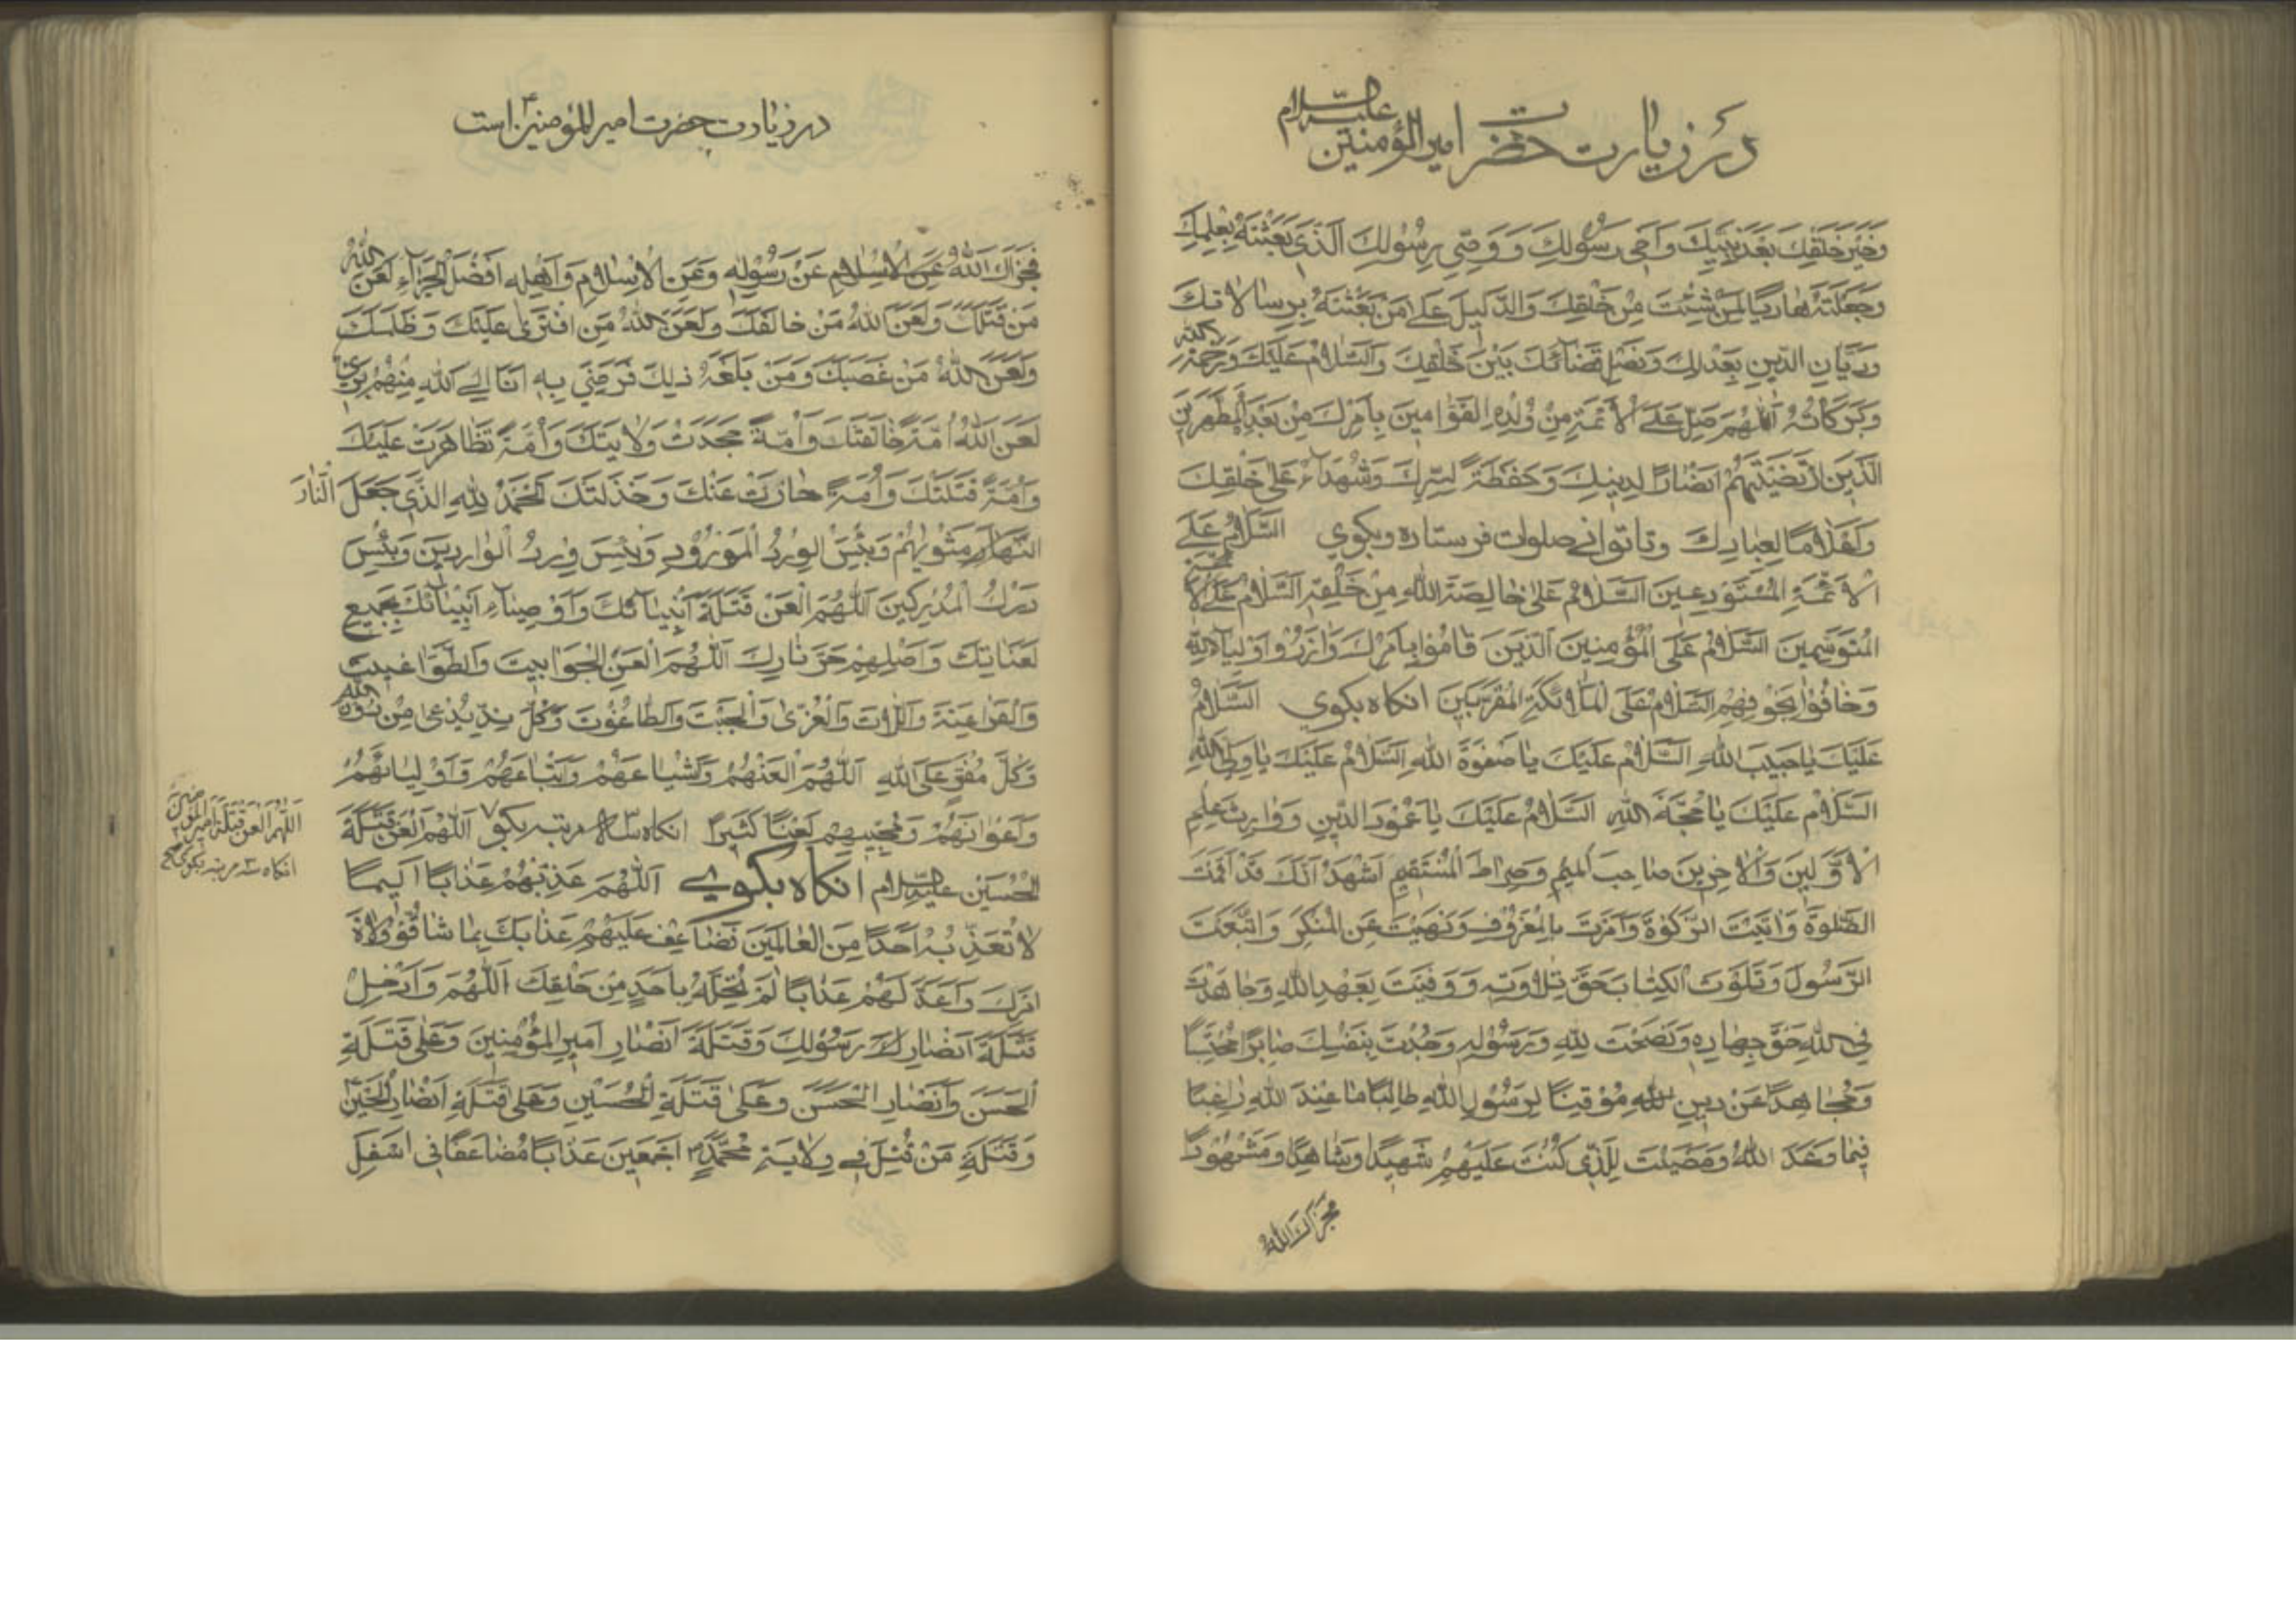 در زیارت حضرت امیر المؤمنین علیه السلام
وَخَيْرِ خَلْقِكَ بَعْدَ نَبِيِّكَ وَاَخى رَسُولِكَ وَوَصِىِّ رَسُولِكَ الَّذى بَعَثْتَهُ بِعِلْمِكَ
وَجَعَلْتَهُ هادِيًا لِمَنْ شِئْتَ مِنْ خَلْقِكَ وَالدَّليلَ عَلى مَنْ بَعَثْتَهُ بِرِسالاتِكَ
وَدَيّانِ الدّينِ بِعَدْلِكَ وَفَصْلِ قَضآئِكَ بَيْنَ خَلْقِكَ وَالسَّلامُ عَلَيْكَ وَرَحْمَةُ اللهِ
وَبَرَكاتُهُ اَللّهُمَّ صَلِّ عَلَى الْاَئِمَّةِ مِنْ وُلْدِهِ الْقَوّامينَ بِاَمْرِكَ مِنْ بَعْدِهِ الْمُطَهَّرينَ
الَّذينَ ارْتَضَيْتَهُمْ اَنْصارًا لِدينِكَ وَحَفَظَةً لِسِرِّكَ وَشُهَدآءَ عَلى خَلْقِكَ
وَاَعْلامًا لِعِبادِكَ وتا توانی صلوات فرستاده وبکوی السَّلامُ عَلَى
الْاَئِمَّةِ الْمُسْتَوْدَعينَ السَّلامُ عَلى خالِصَةِ اللهِ مِنْ خَلْقِهِ السَّلامُ عَلَى الْاَئِمَّةِ
الْمُتَوَسِّمينَ السَّلامُ عَلَى الْمُؤْمِنينَ الَّذينَ قامُوا بِاَمْرِكَ وَازَرُوا اَوْلِيآءَ اللهِ
وَخافُوا بِخَوْفِهِمُ السَّلامُ عَلَى الْمَلائِكَةِ الْمُقَرَّبينَ انکاه بکوی السَّلامُ
عَلَيْكَ يا حَبيبَ اللهِ السَّلامُ عَلَيْكَ يا صَفْوَةَ اللهِ السَّلامُ عَلَيْكَ يا وَلِىَّ اللهِ
السَّلامُ عَلَيْكَ يا حُجَّةَ اللهِ السَّلامُ عَلَيْكَ يا عَمُودَ الدّينِ وَوارِثَ عِلْمِ
الْاَوَّلينَ وَالْاخِرينَ صاحِبَ الْميسَمِ وَصِراطَ الْمُسْتَقيمِ اَشْهَدُ اَنَّكَ قَدْ اَقَمْتَ
الصَّلوةَ وَاتَيْتَ الزَّكوةَ وَاَمَرْتَ بِالْمَعْرُوفِ وَنَهَيْتَ عَنِ الْمُنْكَرِ وَاتَّبَعْتَ
الرَّسُولَ وَتَلَوْتَ الْكِتابَ حَقَّ تِلاوَتِهِ وَوَفَيْتَ بِعَهْدِ اللهِ وَجاهَدْتَ
فِى اللهِ حَقَّ جِهادِهِ وَنَصَحْتَ لِلّهِ وَرَسُولِهِ وَجُدْتَ بِنَفْسِكَ صابِرًا مُحْتَسِبًا
وَمُجاهِدًا عَنْ دينِ اللهِ مُوْقِنًا لِرَسُولِ اللهِ طالِبًا ما عِنْدَ اللهِ راغِبًا
فيما وَعَدَ اللهُ وَمَضَيْتَ لِلَّذى كُنْتَ عَلَيْهِ شَهيدًا وَشاهِدًا وَمَشْهُودًا
فجزاك الله
در زیارت حضرت امیر المؤمنین است
فَجَزاكَ اللهُ عَنِ الْاِسْلامِ عَنْ رَسُولِهِ وَعَنِ الْاِسْلامِ وَاَهْلِهِ اَفْضَلَ الْجَزآءِ لَعَنَ اللهُ
مَنْ قَتَلَكَ وَلَعَنَ اللهُ مَنْ خالَفَكَ وَلَعَنَ اللهُ مَنِ افْتَرى عَلَيْكَ وَظَلَمَكَ
وَلَعَنَ اللهُ مَنْ غَصَبَكَ وَمَنْ بَلَغَهُ ذلِكَ فَرَضِىَ بِهِ اَنَا اِلَى اللهِ مِنْهُمْ بَرىءٌ
لَعَنَ اللهُ اُمَّةً خالَفَتْكَ وَاُمَّةً جَحَدَتْ وِلايَتَكَ وَاُمَّةً تَظاهَرَتْ عَلَيْكَ
وَاُمَّةً قَتَلَتْكَ وَاُمَّةً حادَتْ عَنْكَ وَخَذَلَتْكَ الْحَمْدُ لِلّهِ الَّذى جَعَلَ النّارَ
مَثْويهُمْ وَبِئْسَ الْوِرْدُ الْمَوْرُودُ وَبِئْسَ وِرْدُ الْوارِدينَ وَبِئْسَ
دَرْكُ الْمُدْرِكينَ اَللّهُمَّ الْعَنْ قَتَلَةَ اَنْبِيآئِكَ وَاَوْصِيآءِ اَنْبِيآئِكَ بِجَميعِ
لَعَناتِكَ وَاَصْلِهِمْ حَرَّ نارِكَ اَللّهُمَّ الْعَنِ الْجَوابيتَ وَالطَّواغيتَ
وَالْفَراعِنَةَ وَاللّاتَ وَالْعُزّى وَالْجِبْتَ وَالطّاغُوتَ وَكُلَّ نِدٍّ يُدْعى مِنْ دُونِ اللهِ
وَكُلَّ مُفْتَرٍ عَلَى اللهِ اَللّهُمَّ الْعَنْهُمْ وَاَشْياعَهُمْ وَاَتْباعَهُمْ وَاَوْلِيائَهُمْ
وَاَعْوانَهُمْ وَمُحِبّيهِمْ لَعْنًا كَثيرًا انکاه سه مرتبه بکو اَللّهُمَّ الْعَنْ قَتَلَةَ
اللهم العن قتلة امیر المؤمنین
انکاه سه مرتبه بکو
الْحُسَيْنِ علیه السلام انکاه بکوی اَللّهُمَّ عَذِّبْهُمْ عَذابًا اَليمًا
لا تُعَذِّبُهُ اَحَدًا مِنَ الْعالَمينَ وَضاعِفْ عَلَيْهِمْ عَذابَكَ بِما شاقُّوا وُلاةَ
اَمْرِكَ وَاَعِدَّ لَهُمْ عَذابًا لَمْ تُحِلَّهُ بِاَحَدٍ مِنْ خَلْقِكَ اَللّهُمَّ وَاَدْخِلْ
قَتَلَةَ اَنْصارِ رَسُولِكَ وَقَتَلَةَ اَنْصارِ اَميرِ الْمُؤْمِنينَ وَعَلى قَتَلَةِ
الْحَسَنِ وَاَنْصارِ الْحَسَنِ وَعَلى قَتَلَةِ الْحُسَيْنِ وَعَلى قَتَلَةِ اَنْصارِ الْحُسَيْنِ
وَقَتَلَةِ مَنْ قُتِلَ فى وِلايَةِ مُحَمَّدٍ اَجْمَعينَ عَذابًا مُضاعَفًا فى اَسْفَلِ